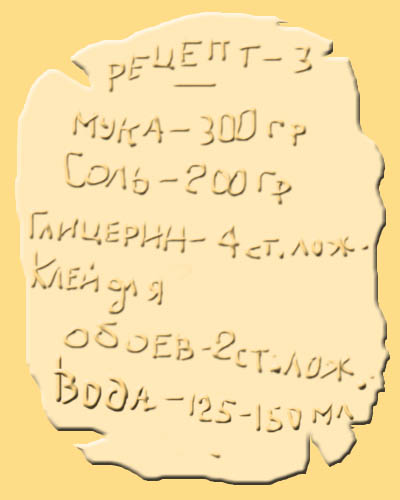 РЕЦЕПТ-3
МУКА-300 гр
СОЛЬ-200 гр
ГЛИЦЕРИН-4 ст.лож.
КЛЕЙ для
ОБОЕВ-2ст.лож.
ВОДА-125-150 мл